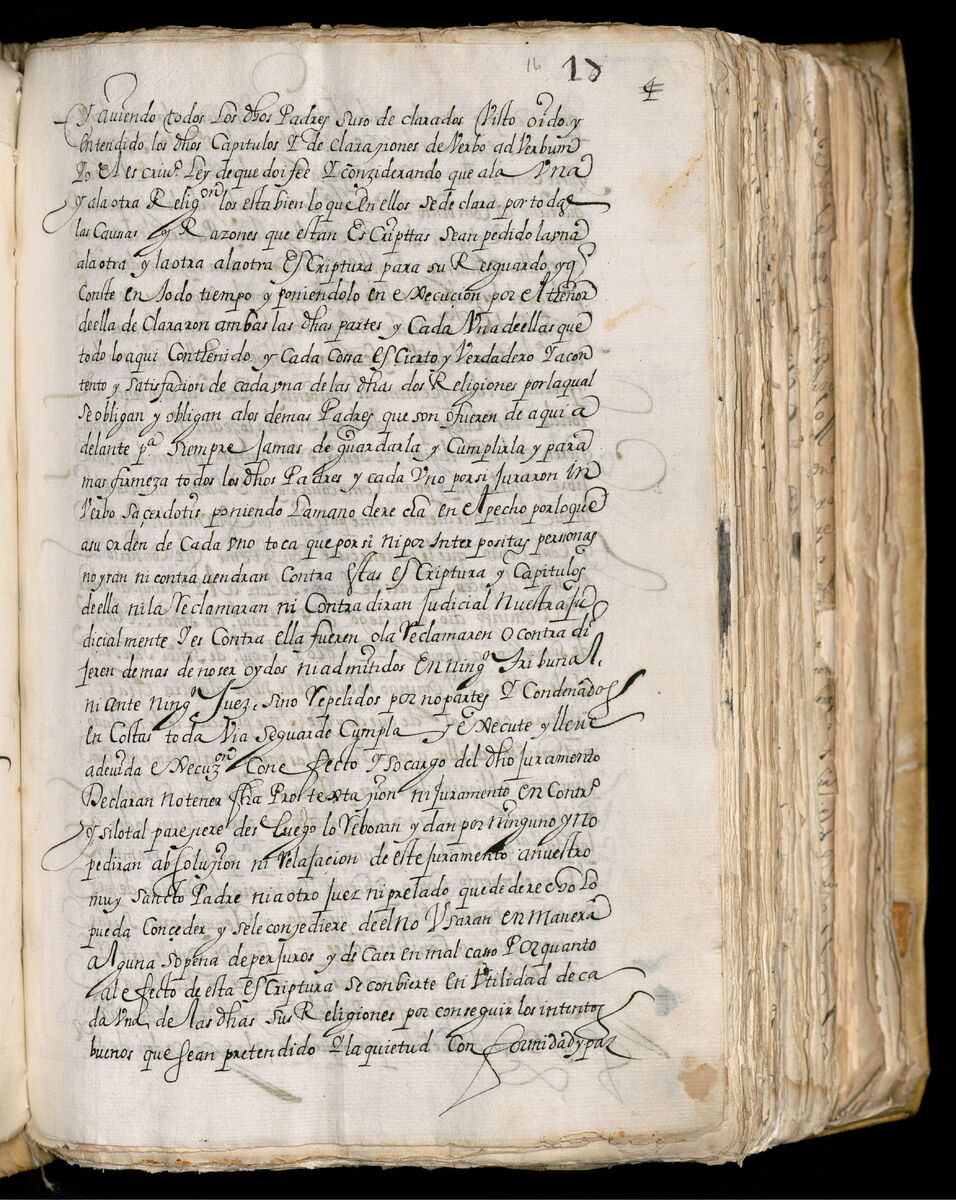 16 18
Y auiendo todos los dhos Padres suso de clarados Visto oido y
entendido los dhos Capitulos Y de Claraçiones de Verbo ad Verbum
Yo el es criuº Ley de que doi fee Y conziderando que ala Vna
y ala otra Religon los esta bien lo que en ellos se de clara por todas
las Causas y Razones que estan EsCripttas sean pedido la vna
ala otra y la otra ala otra EsCriptura para su Resguardo y q
Conste en todo tiempo y poniendolo en execucion por el thenor
de ella de Clararon ambas las dhas partes y Cada Vna de ellas que
todo lo aqui Conthenido y Cada Cossa es Cierto y Verdadero Y a con
tento y satisfazion de cada vna de las dhas dos Religiones por la qual
se obligan y obligan a los demas Padres que son o fueren de aqui a
delante pª siempre Jamas de guardarla y Cumplirla y para
mas firmeza todos los dhos Padres y cada Vno por si juraron in
Verbo saçerdotis poniendo La mano derecha en el pecho por lo que
a su orden de Cada vno toca que por si ni por Inter positas personas
no yran ni contra vendran Contra Estas esCriptura y Capitulos
de ella ni la Reclamaran ni Contradiran Judicial Nuestra Ju
dicialmente Y es Contra ella fueren o la Reclamaren O contra di
jeren de mas de no ser oydos ni admitidos en ningº tribunal
ni ante ningº Juez, sino Repelidos por no partes Y Condenados
en Costas toda Via se guarde Cumpla y execute y lleue
a deuida execuzon Con efecto Y so cargo del dho juramento
Declaran no tener fha Protextaçion ni juramento en Contrº
y si lo tal pareçiere desde luego lo Rebocan y dan por ninguno y no
pediran absoluçion ni Relajacion de este juramento a nuestro
muy sancto Padre ni a otro Juez ni prelado que de derecho lo
pueda Conçeder y se le conçediere de el no Vsaran en manera
alguna so pena de perjuros y de Caer en mal casso Por quanto
al efecto de esta esCriptura se conbierte en Vtilidad de ca
da Vna de las dhas sus Religiones por conseguir los intentos
buenos que sean pretendido Y la quietud Conformidad y paz